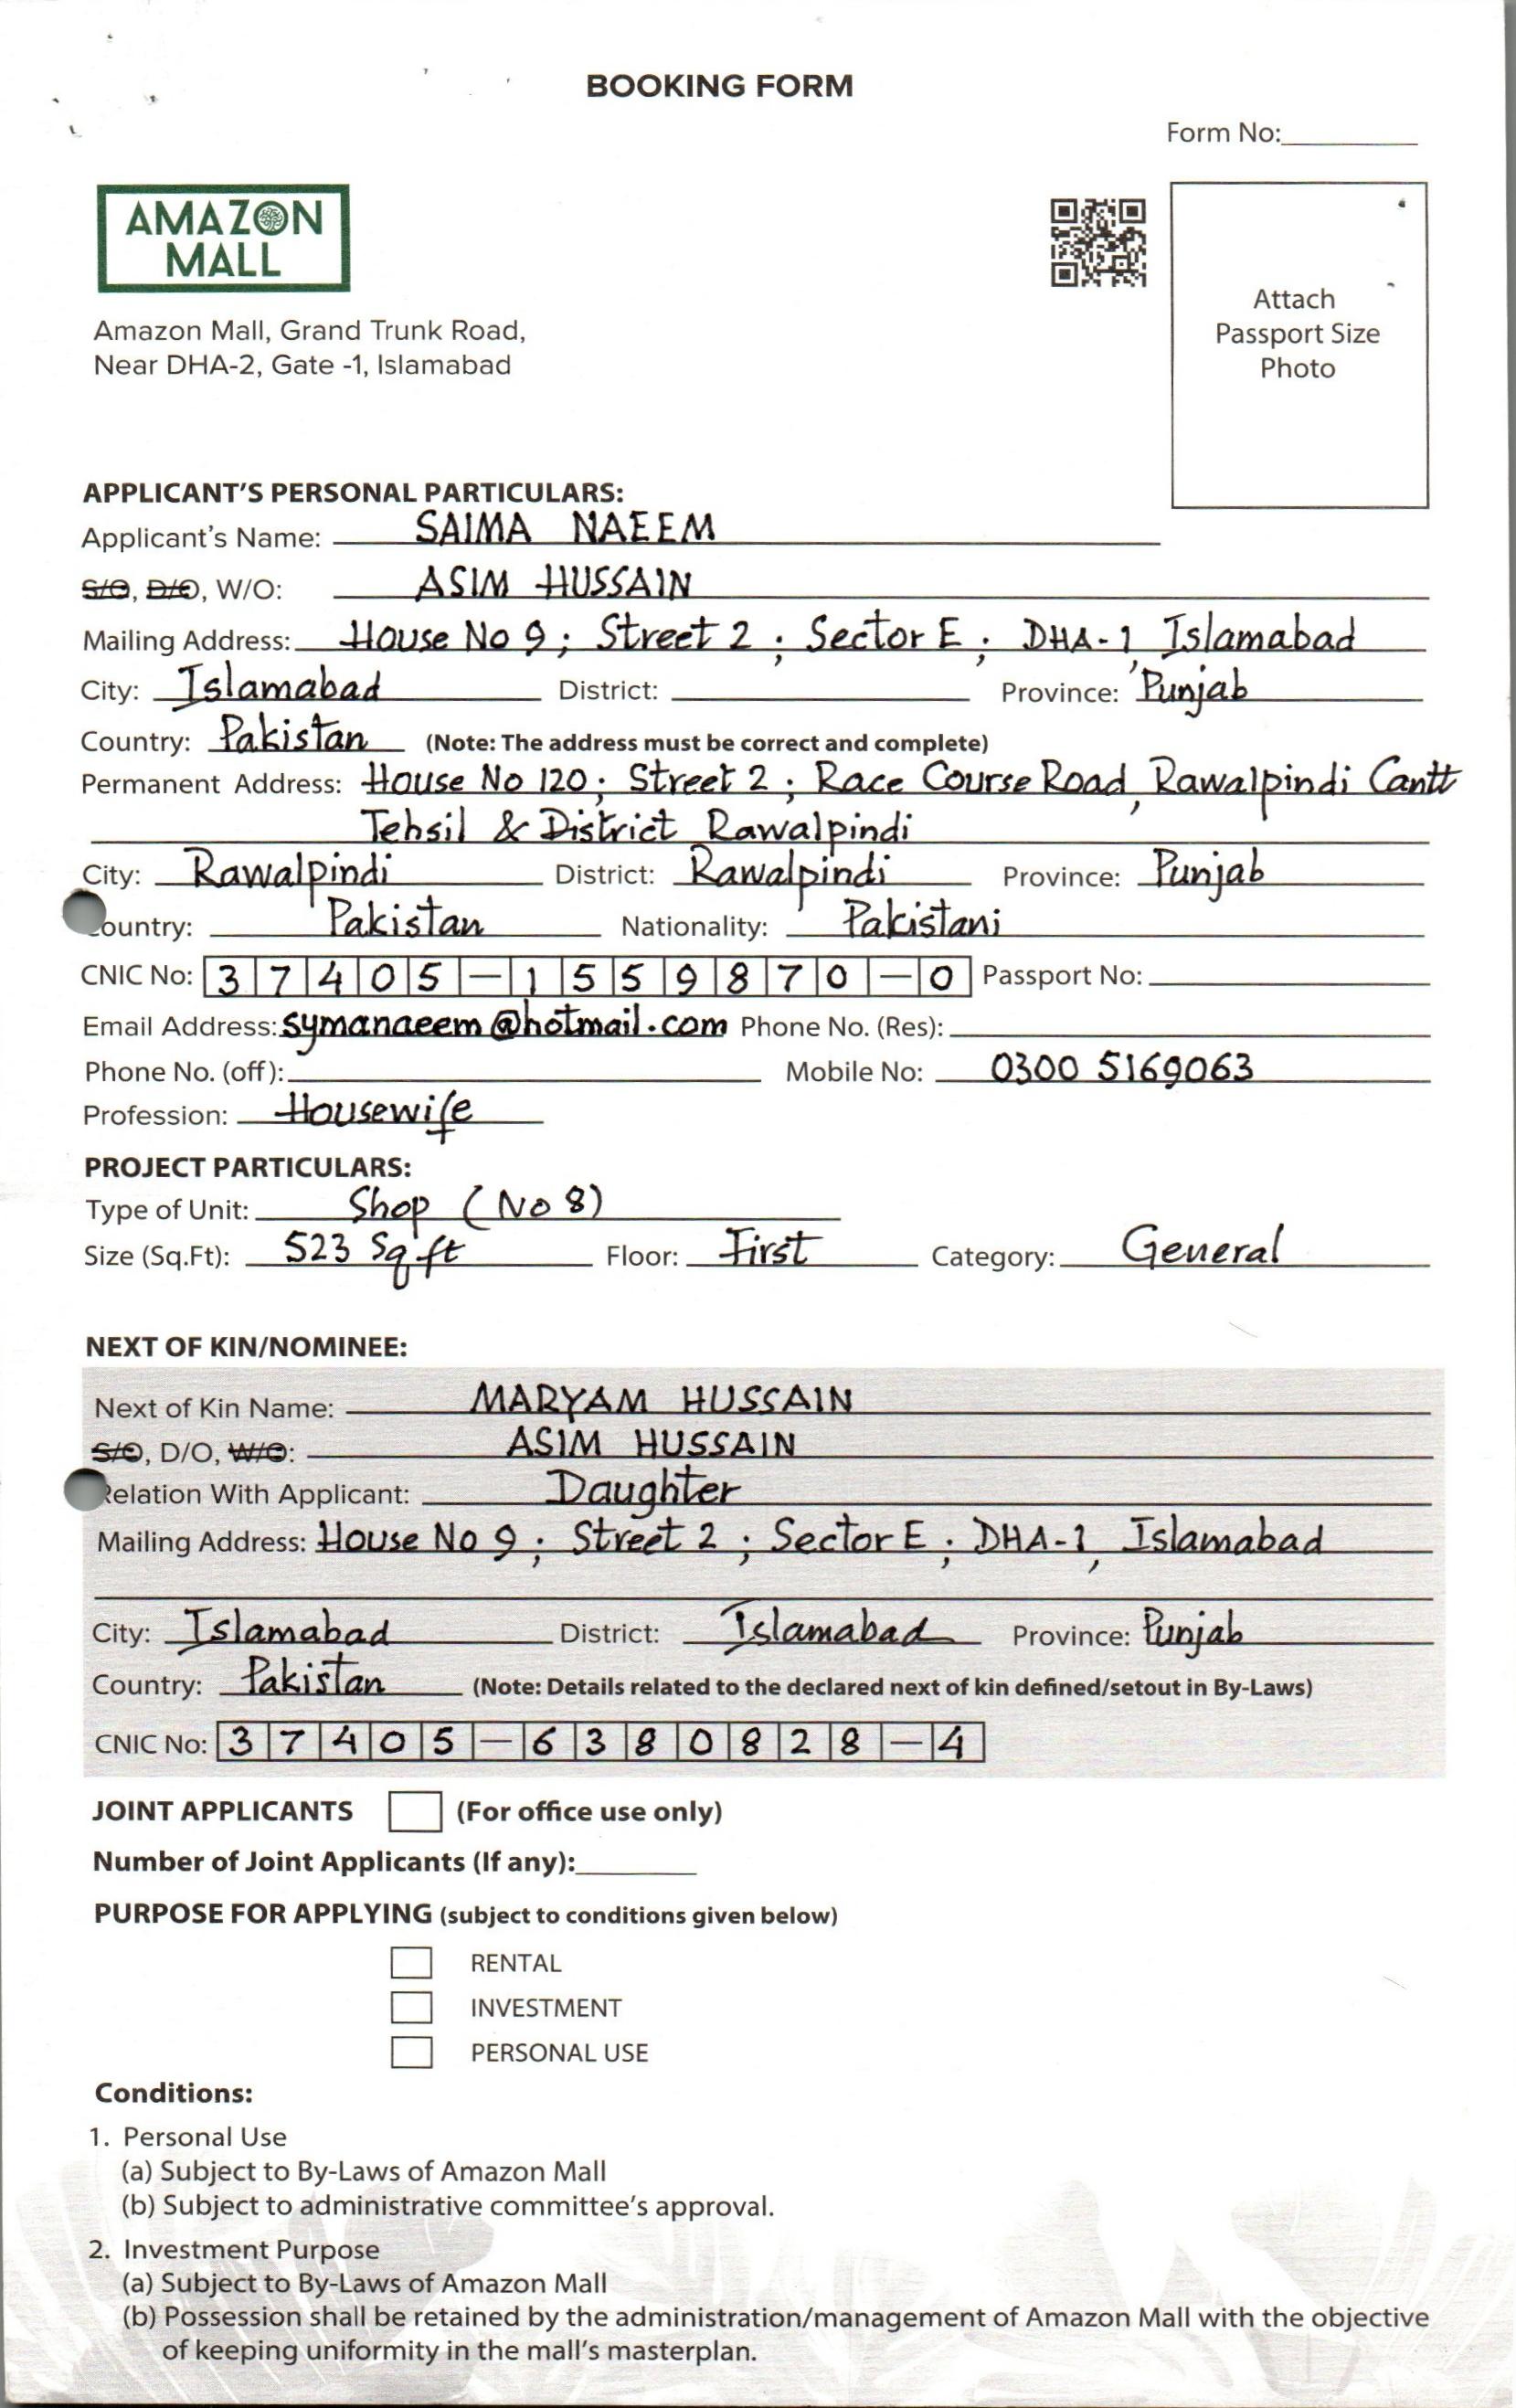 BOOKING FORM
Form No:
AMAZON
MALL
Amazon Mall, Grand Trunk Road,
Near DHA-2, Gate -1, Islamabad
Attach
Passport Size
Photo
APPLICANT'S PERSONAL PARTICULARS:
Applicant's Name: SAIMA NAEEM
S/O, D/O, W/O: ASIM HUSSAIN
Mailing Address: House No 9; Street 2; Sector E; DHA-1, Islamabad
City: Islamabad District: Province: Punjab
Country: Pakistan (Note: The address must be correct and complete)
Permanent Address: House No 120; Street 2; Race Course Road, Rawalpindi Cantt
Tehsil & District Rawalpindi
City: Rawalpindi District: Rawalpindi Province: Punjab
ountry: Pakistan Nationality: Pakistani
CNIC No: 37405-1559870-0 Passport No:
Email Address: symanaeem@hotmail.com Phone No. (Res):
Phone No. (off): Mobile No: 0300 5169063
Profession: Housewife
PROJECT PARTICULARS:
Type of Unit: Shop (No 8)
Size (Sq.Ft): 523 Sq ft Floor: First Category: General
NEXT OF KIN/NOMINEE:
Next of Kin Name: MARYAM HUSSAIN
S/O, D/O, W/O: ASIM HUSSAIN
Relation With Applicant: Daughter
Mailing Address: House No 9; Street 2; Sector E; DHA-1, Islamabad
City: Islamabad District: Islamabad Province: Punjab
Country: Pakistan (Note: Details related to the declared next of kin defined/setout in By-Laws)
CNIC No: 37405-6380828-4
JOINT APPLICANTS (For office use only)
Number of Joint Applicants (If any):
PURPOSE FOR APPLYING (subject to conditions given below)
RENTAL
INVESTMENT
PERSONAL USE
Conditions:
1. Personal Use
(a) Subject to By-Laws of Amazon Mall
(b) Subject to administrative committee's approval.
2. Investment Purpose
(a) Subject to By-Laws of Amazon Mall
(b) Possession shall be retained by the administration/management of Amazon Mall with the objective
of keeping uniformity in the mall's masterplan.